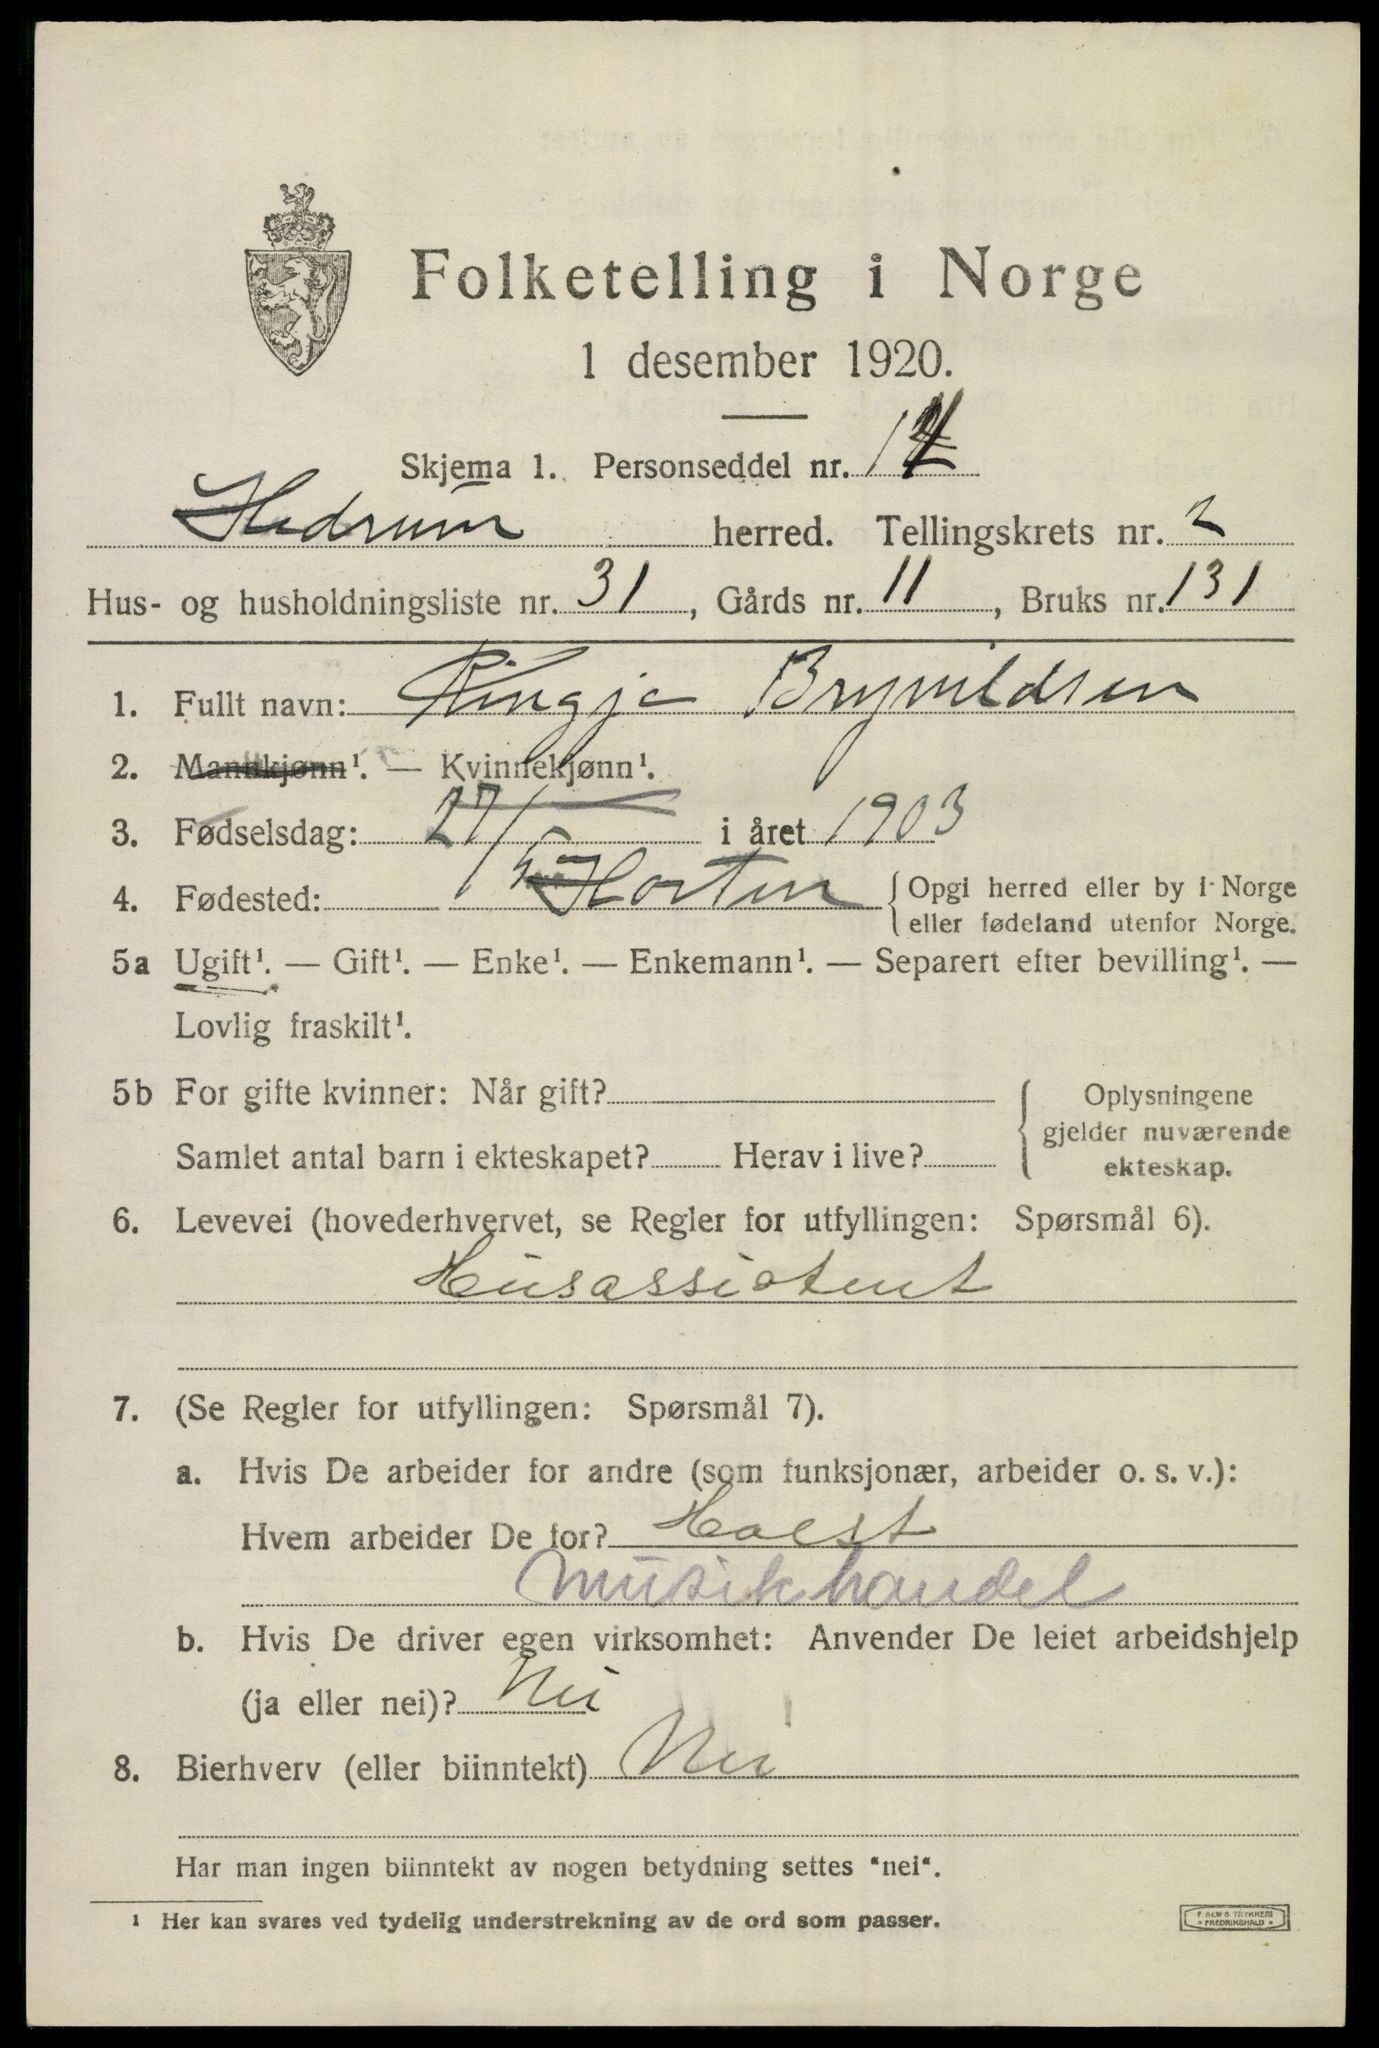 Folketelling i Norge
1 desember 1920.
Skjema 1. Personseddel nr. 1
Hedrum herred. Tellingskrets nr. 2
Hus- og husholdningsliste nr. 31, Gårds nr. 11, Bruks nr. 131
1. Fullt navn: Brynildsen
2. Mannkjønn¹. — Kvinnekjønn¹.
3. Fødselsdag: 27/5 i året 1903
4. Fødested: Horten { Opgi herred eller by i Norge
eller fødeland utenfor Norge.
5a Ugift¹. — Gift¹. — Enke¹. — Enkemann¹. — Separert efter bevilling¹. —
Lovlig fraskilt¹.
5b For gifte kvinner: Når gift? { Oplysningene
gjelder nuværende
Samlet antal barn i ekteskapet? Herav i live? ekteskap.
6. Levevei (hovederhvervet, se Regler for utfyllingen: Spørsmål 6).
Husassistent
7. (Se Regler for utfyllingen: Spørsmål 7).
a. Hvis De arbeider for andre (som funksjonær, arbeider o. s. v.):
Hvem arbeider De for? Holst
Musikhandel
b. Hvis De driver egen virksomhet: Anvender De leiet arbeidshjelp
(ja eller nei)? Nei
8. Bierhverv (eller biinntekt) Nei
Har man ingen biinntekt av nogen betydning settes "nei".
¹ Her kan svares ved tydelig understrekning av de ord som passer.
TRYKKERI
FREDRIKSHALD